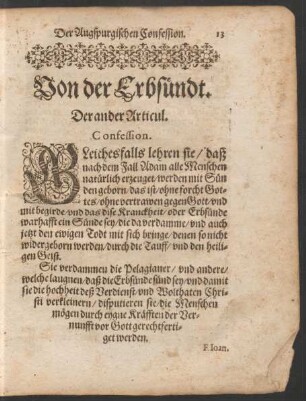 Der Augspurgischen Confession. 13
Von der Erbsündt.
Der ander Articul.
Confession.
GLeichesfalls lehren sie / daß
nach dem Fall Adam alle Menschen
natürlich erzeuget / werden mit Sün
den geborn / das ist / ohne forcht Got-
tes / ohne vertrawen gegen Gott / vnd
mit begirde / vnd das dise Kranckheit / oder Erbsünde
warhafft ein Sünde sey / die da verdamme / vnd auch
jetzt den ewigen Todt mit sich bringe / denen so nicht
wider geborn werden / durch die Tauff / vnd den heili-
gen Geist.
Sie verdammen die Pelagianer / vnd andere /
welche laugnen / daß die Erbsünde sünd sey / vnd damit
sie die hochheit deß Verdienst vnd Wolthaten Chri-
sti verkleinern / disputieren sie / die Menschen
mögen durch eygne Kräfften der Ver-
nunfft vor Gott gerechtferti-
get werden.
F. Ioan.